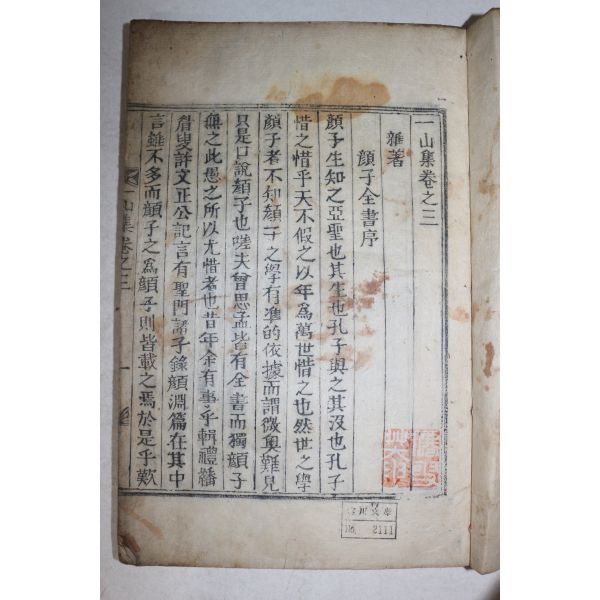 一山集卷之三
雜著
顔子全書序
顔子生知之亞聖也其生也孔子與之其沒也孔子
惜之惜乎天不假之以年爲萬世惜之也然世之學
顔子者不知顔子之學有準的依據而謂微奧難見
只是口說顔子也嗟夫曾思孟皆有全書而獨顔子
無之此愚之所以尤惜者也昔年余有事乎輯禮繙
眉叟許文正公記言有聖門諸子錄顔淵篇在其中
言雖不多而顔子之爲顔子則皆載之焉於是乎歎
一山集卷之三
一
No. 2111